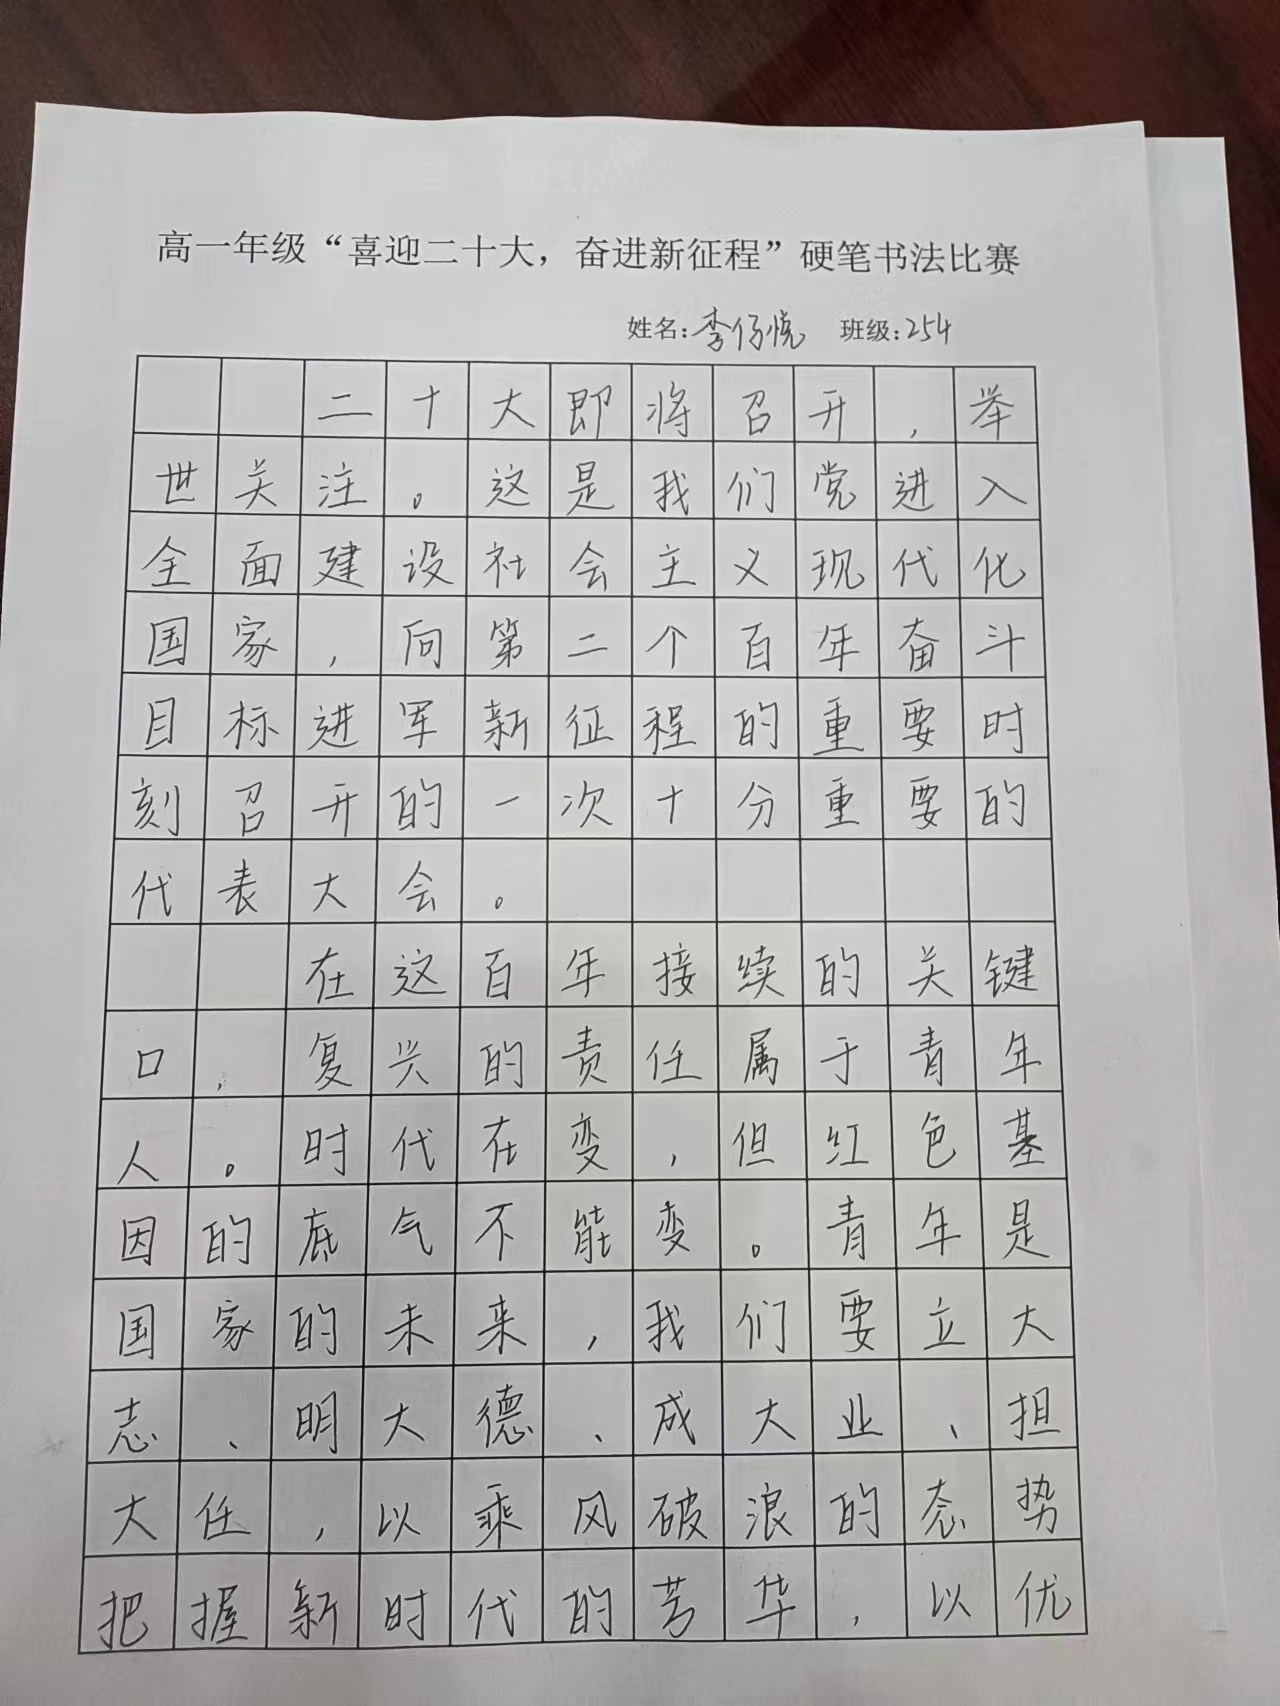 高一年级“喜迎二十大，奋进新征程”硬笔书法比赛
姓名:李仔悦 班级:254
二十大即将召开，举
世关注。这是我们党进入
全面建设社会主义现代化
国家，向第二个百年奋斗
目标进军新征程的重要时
刻召开的一次十分重要的
代表大会。
在这百年接续的关键
口，复兴的责任属于青年
人。时代在变，但红色基
因的底气不能变。青年是
国家的未来，我们要立大
志、明大德、成大业、担
大任，以乘风破浪的态势
把握新时代的芳华，以优